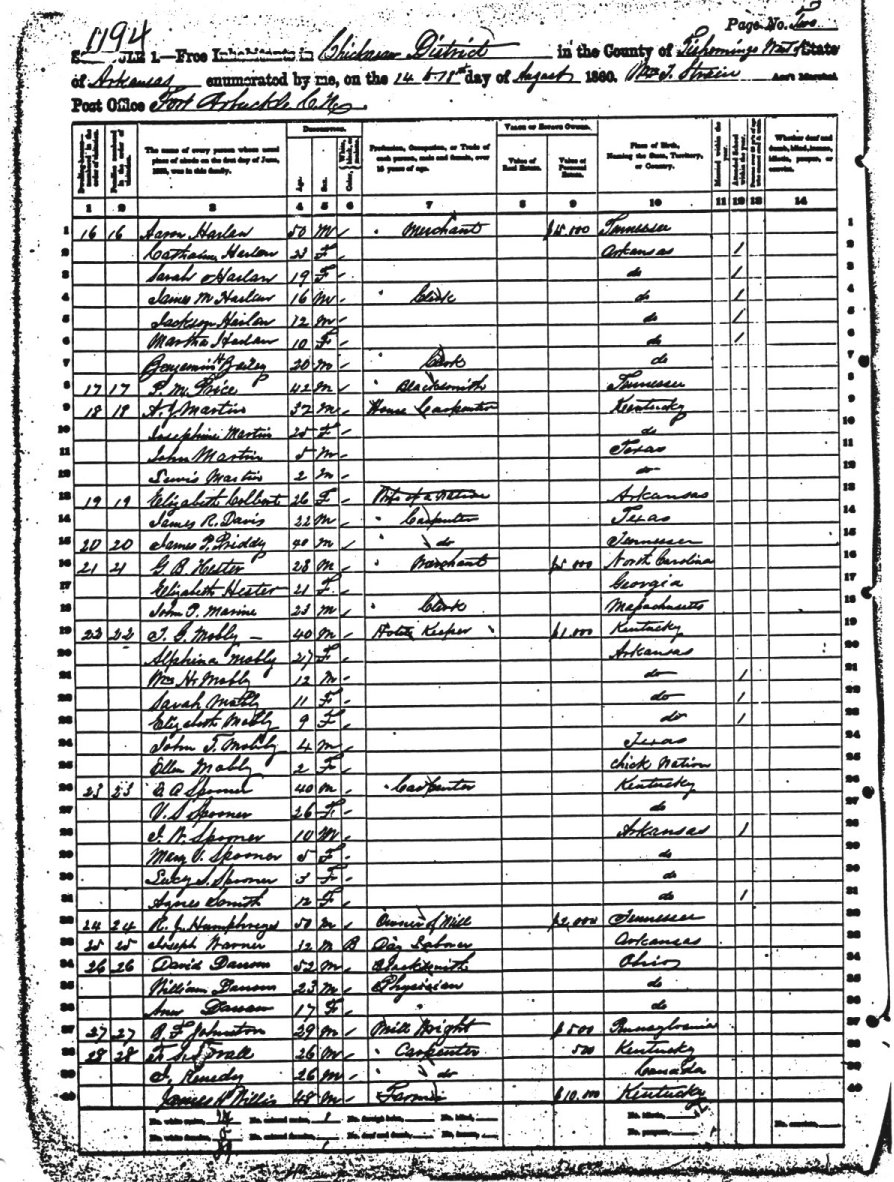 1194
Page No. Two
SCHEDULE 1.—Free Inhabitants in Chickasaw District in the County of Tishomingo State
of Arkansas enumerated by me, on the 14 & 18th day of August 1860. Wm J. Strain Ass't Marshal.
Post Office Fort Arbuckle C.N.
The name of every person whose usual place of abode on the first day of June, 1860, was in this family.
DESCRIPTION.
Age. Sex.
Profession, Occupation, or Trade of each person, male and female, over 15 years of age.
VALUE OF ESTATE OWNED.
Value of Real Estate. Value of Personal Estate.
Place of Birth, Naming the State, Territory, or Country.
Married within the year. Attended School within the year.
Whether deaf and dumb, blind, insane, idiotic, pauper, or convict.
1 2 3 4 5 6 7 8 9 10 11 12 13 14
1 16 16 Aaron Harlan 50 M Merchant $15,000 Tennessee 1
2 Catharine Harlan 23 F Arkansas / 2
3 Sarah Harlan 19 F do / 3
4 James M Harlan 16 M Clerk do / 4
5 Jackson Harlan 12 M do / 5
6 Martha Harlan 10 F do / 6
7 Benjamin H Bailey 20 M Clerk do 7
8 17 17 P. M. Price 42 M Blacksmith Tennessee 8
9 18 18 A. J. Martin 32 M House Carpenter Kentucky 9
10 Josephine Martin 25 F do 10
11 John Martin 5 M Texas 11
12 Lewis Martin 2 M do 12
13 19 19 Elizabeth Colbert 26 F Wife of a Native Arkansas 13
14 James R. Davis 22 M Carpenter Texas 14
15 20 20 James P. Priddy 40 M do Tennessee 15
16 21 21 G B Hester 28 M Merchant $5,000 North Carolina 16
17 Elizabeth Hester 21 F Georgia 17
18 John T. Marine 23 M Clerk Massachusetts 18
19 22 22 T. G. Mobly 40 M Hotel Keeper $1,000 Kentucky 19
20 Alphina Mobly 27 F Arkansas 20
21 Wm H. Mobly 12 M do / 21
22 Sarah Mobly 11 F do / 22
23 Elizabeth Mobly 9 F do / 23
24 John T. Mobly 4 M Texas 24
25 Ellen Mobly 2 F Chick Nation 25
26 23 23 B A Spooner 40 M Carpenter Kentucky 26
27 V. S. Spooner 26 F do 27
28 J. W. Spooner 10 M Arkansas / 28
29 Mary V. Spooner 5 F do 29
30 Lucy S. Spooner 3 F do 30
31 Agnes Smith 12 F do / 31
32 24 24 R. J. Humphreys 50 M Owner of Mill $2,000 Tennessee 32
33 25 25 Joseph Warner 12 M B Day Laborer Arkansas 33
34 26 26 David Dawson 52 M Blacksmith Ohio 34
35 William Dawson 23 M Physician do 35
36 Ann Dawson 17 F do 36
37 27 27 B. F. Johnston 29 M Mill Wright $500 Pennsylvania 37
38 28 28 26 M Carpenter 500 Kentucky 38
39 J. Kenedy 26 M do Canada 39
40 James H Willis 48 M Farmer $10,000 Kentucky 40
No. white males, No. colored males, 1 No. foreign born, No. blind, No. idiotic, No. convicts,
No. white females, No. colored females, No. deaf and dumb, No. insane, No. paupers,